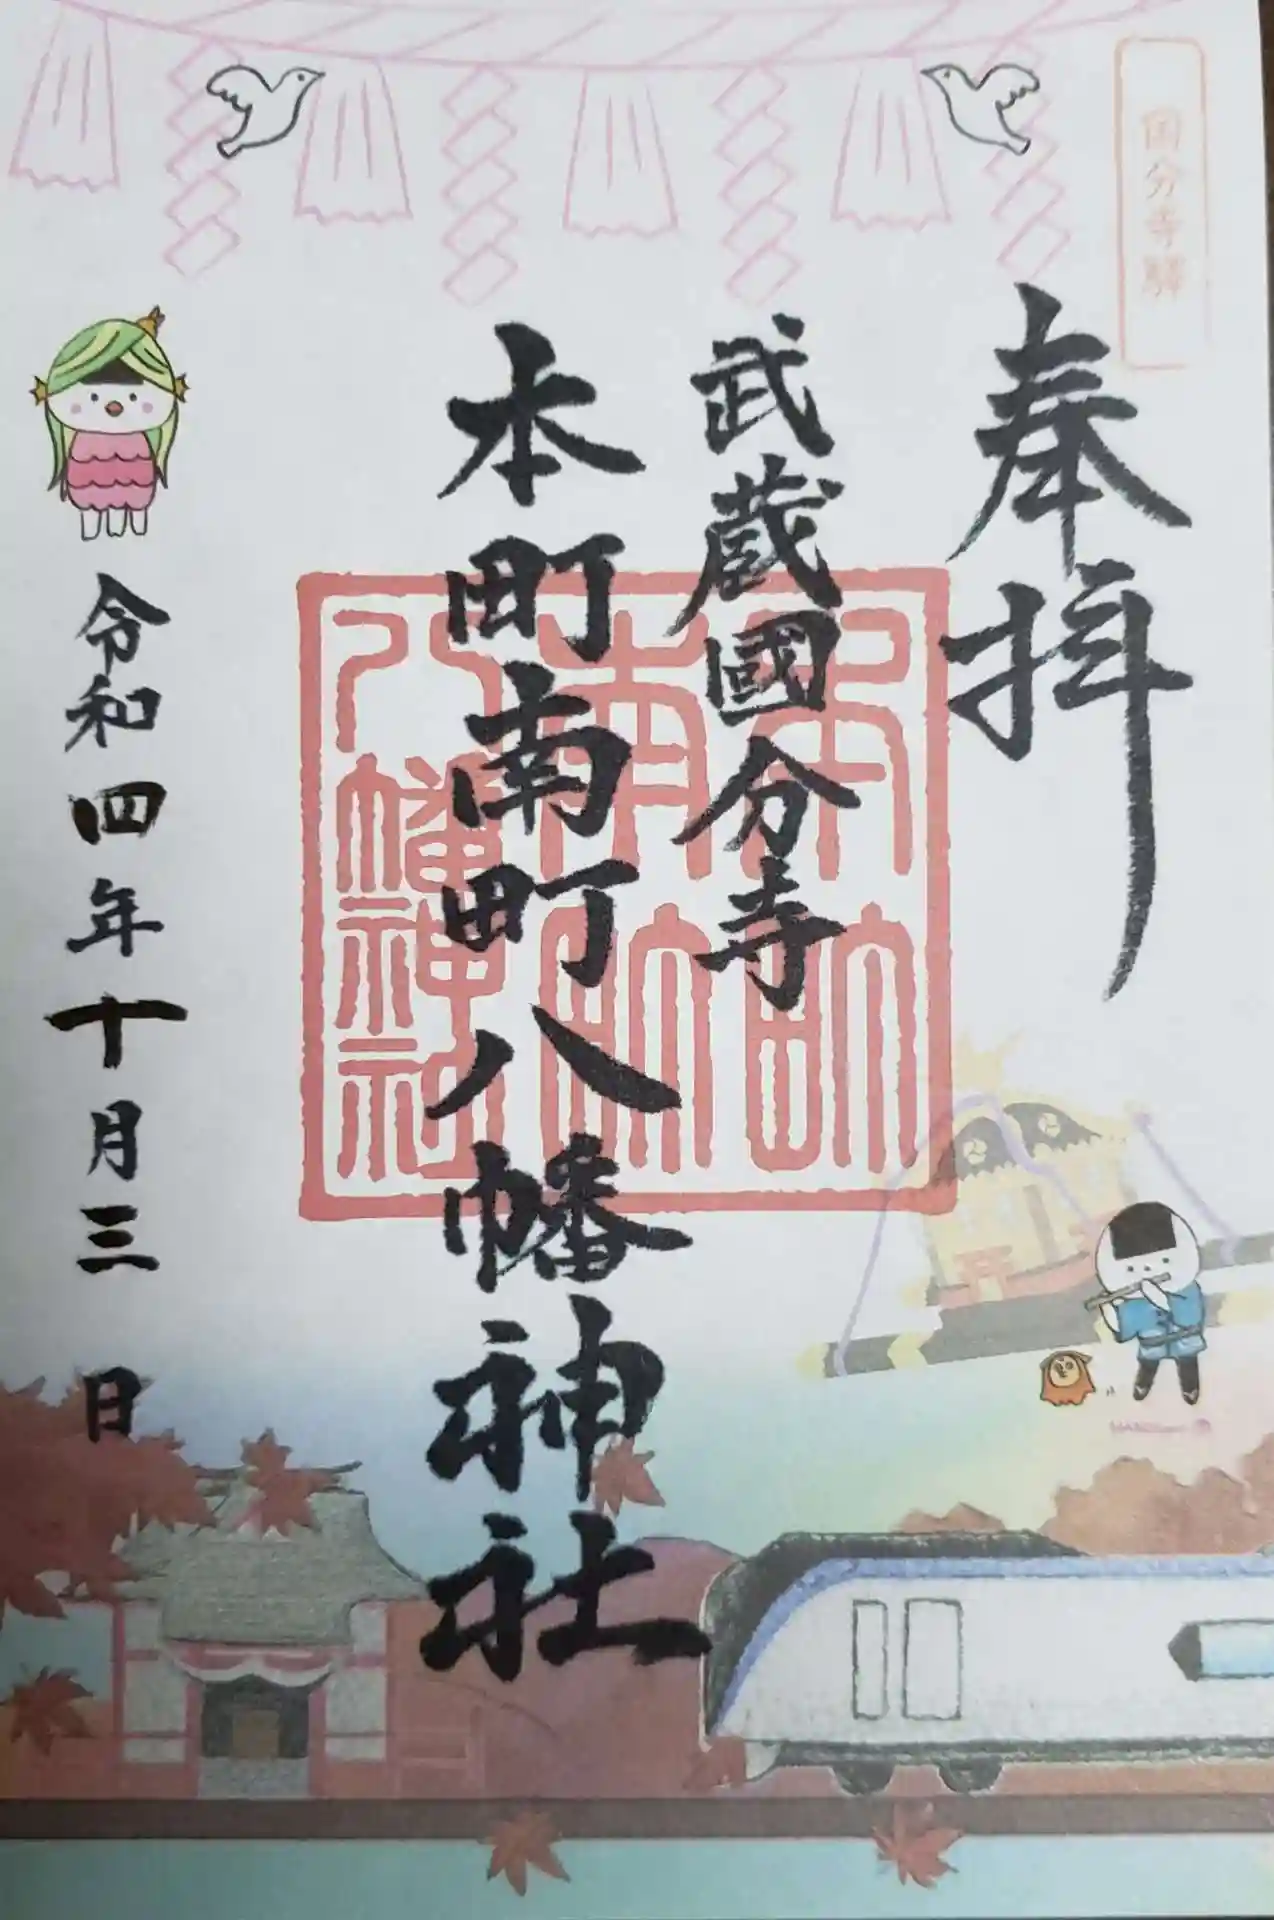 国分寺驛
奉拝
武蔵國分寺
本町南町八幡神社
本町
南町
八幡神社
令和四年十月三日